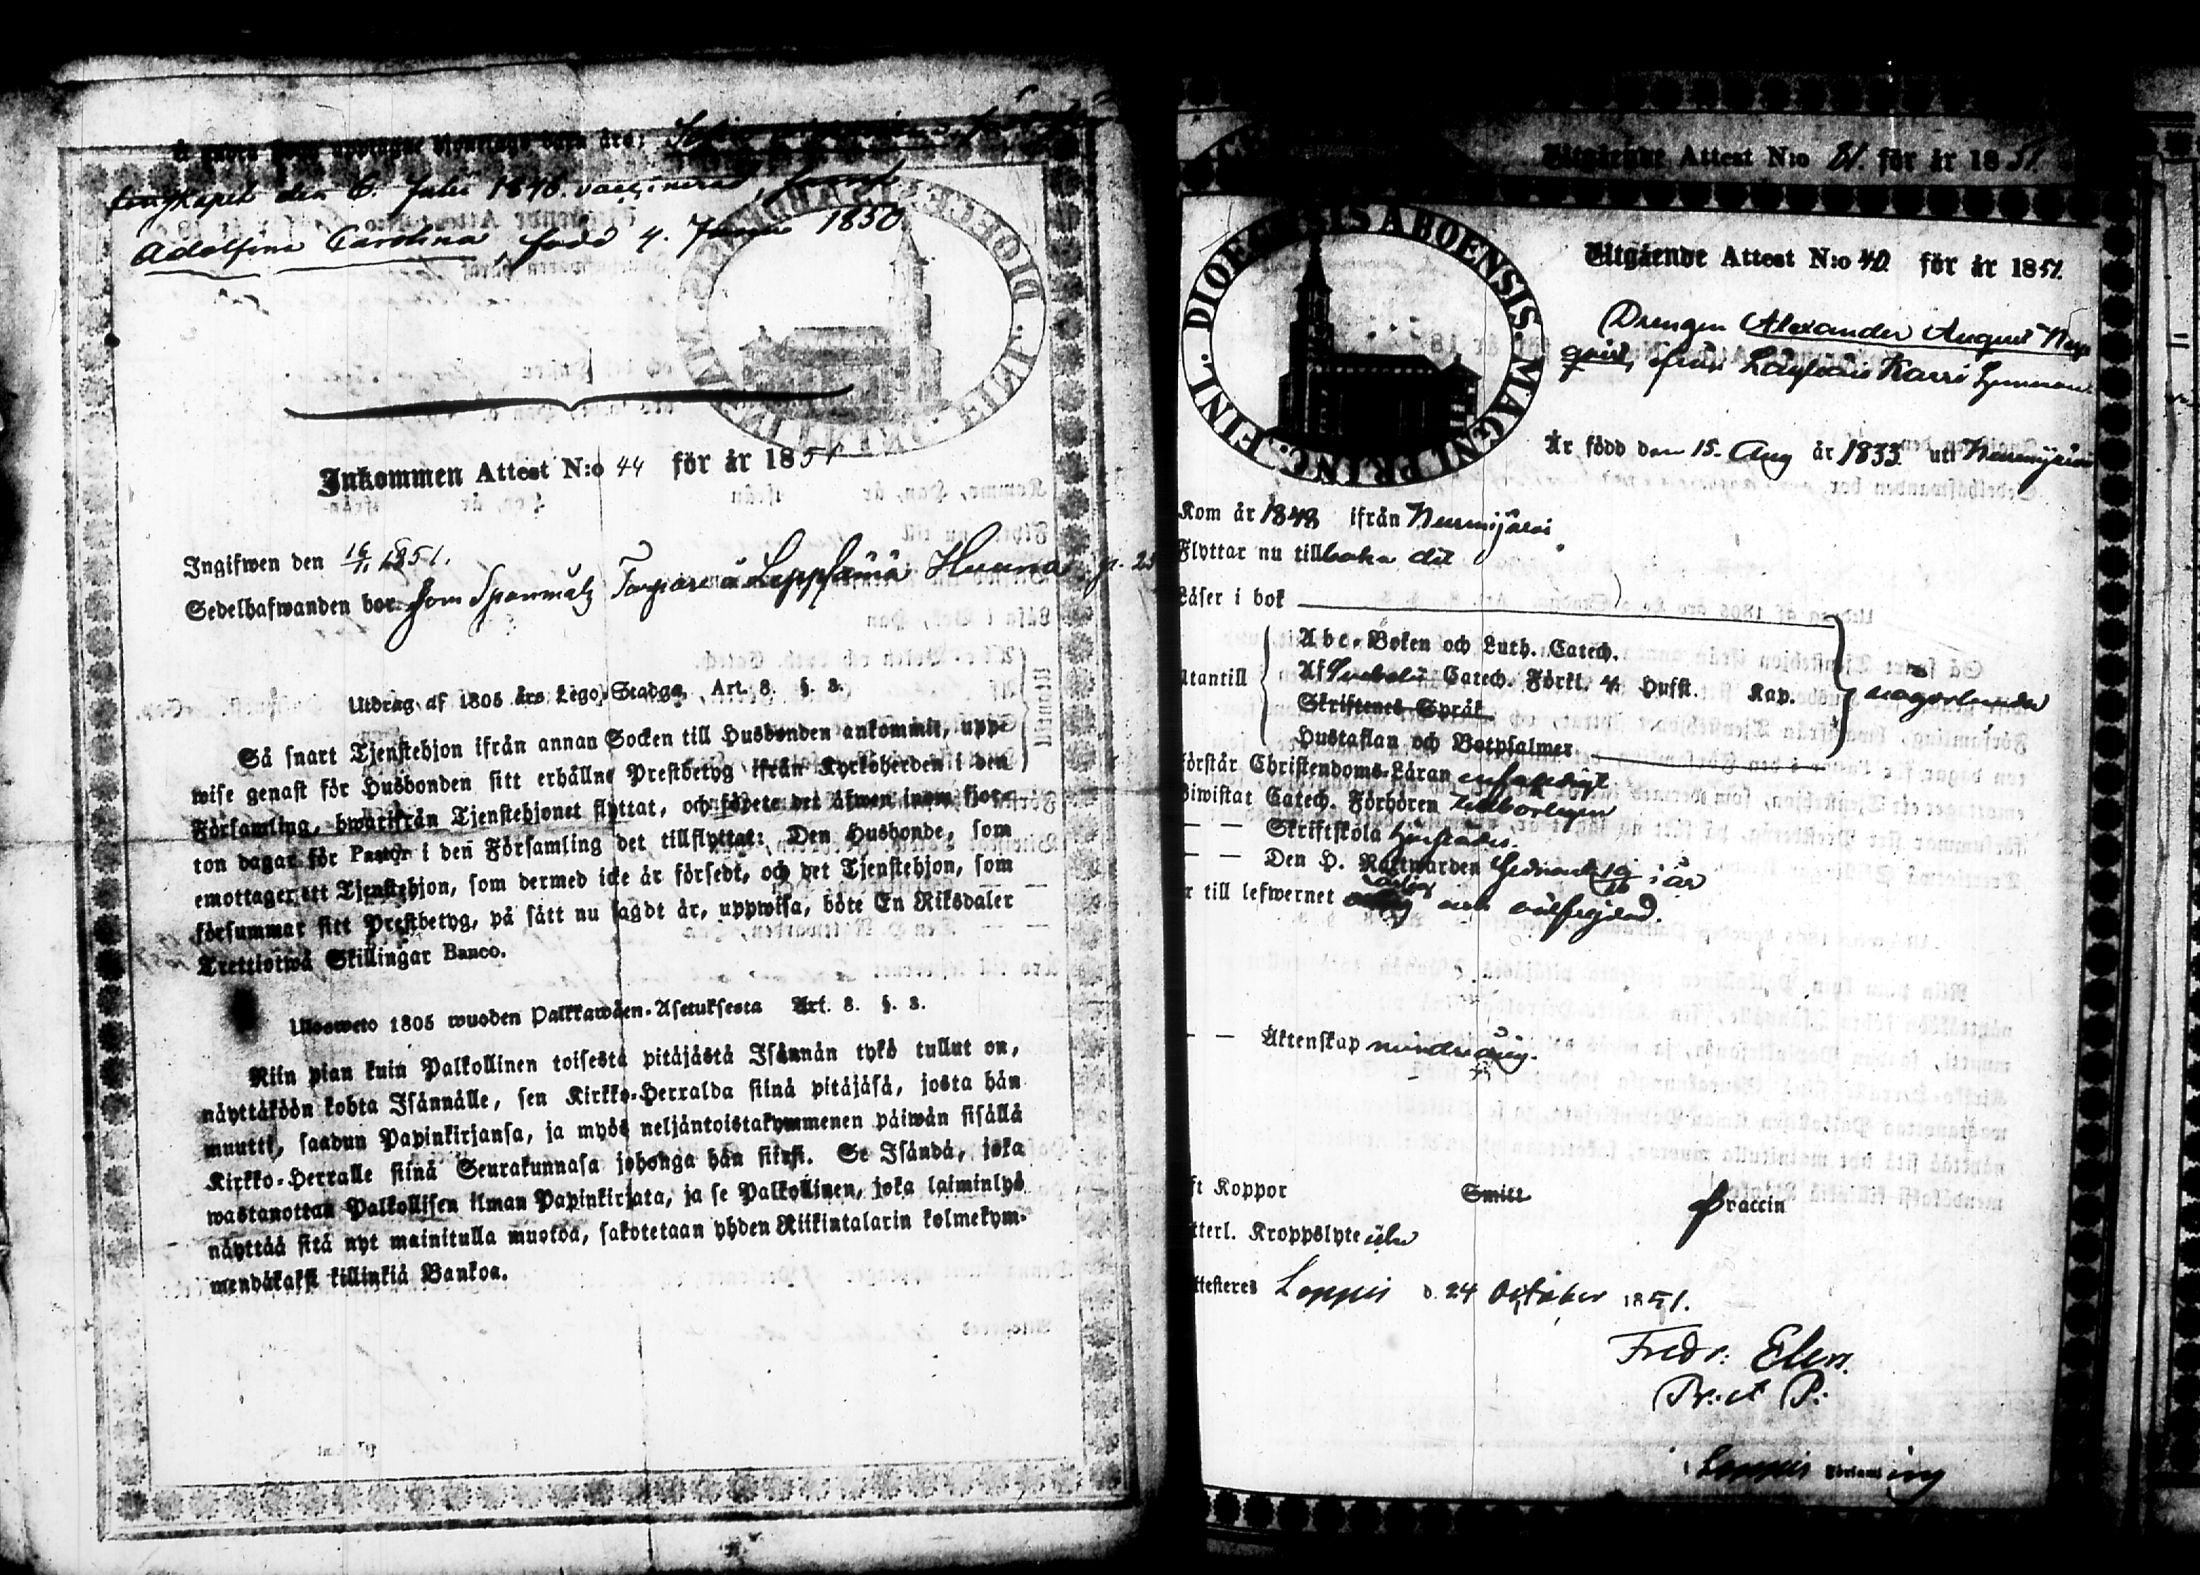 tenskapet den 6. Julii 1848. vaccinerad, samt
Adolfina Carolina, född 4. Junii 1850
Inkommen Attest N:o 44 för år 1851
Ingifwen den 16/11 1851.
Sedelhafwanden bor Som Spanmålz Torpare å Leppilänä Hunna p. 25
Utdrag af 1805 års Lego-Stadga, Art. 8. §. 3.
Så snart Tjenstehjon ifrån annan Socken till Husbonden ankommit, uppwise
genast för Husbonden sitt erhållne Prestbetyg ifrån Kyrkoherden i den
Församling, hwarifrån Tjenstehjonet flyttat, och förete det äfwen inom fjorton
dagar för Pastor i den Församling det tillflyttat: Den Husbonde, som
emottager ett Tjenstehjon, som dermed icke är försedt, och det Tjenstehjon, som
försummar sitt Prestbetyg, på sätt nu sagdt är, uppwisa, böte En Riksdaler
Trettiotwå Skillingar Banco.
Ulosweto 1805 wuoden Palkkawäen-Asetuksesta Art. 8. §. 3.
Niin pian kuin Palkollinen toisesta pitäjästä Isännän tykö tullut on,
näyttäköön kohta Isännälle, sen Kirkko-Herralda siinä pitäjäsä, josta hän
muutti, saadun Papinkirjansa, ja myös neljäntoistakymmenen päiwän sisällä
Kirkko-Herralle siinä Seurakunnasa johonga hän siirsi. Se Isändä, joka
wastanottaa Palkollisen ilman Papinkirjata, ja se Palkollinen, joka laiminlyö
näyttää sitä nyt mainitulla muotoa, sakotetaan yhden Riikintalarin kolmekymmendäkaksi
killinkiä Bankoa.
Utgående Attest N:o 81. för år 1851.
DIOECESIS ABOENSIS. MAGNI PRINC. FINL.
Utgående Attest N:o 40 för år 1851.
Drengen Alexander August Nyqvist,
ifrån Läyliäis Karri Hemman
Är född den 15. Aug år 1833. uti Nurmijärvi
Kom år 1848 ifrån Nurmijärvi
Flyttar nu tillbaka dit
Läser i bok
Abc-Boken och Luth. Catech.
Utantill Af Svebelii Catech. Förkl. 4 Hufst. Kap. någorlunda
Skriftenes Språk
Hustaflan och Botpsalmer
Förstår Christendoms-Läran enfaldigt
Biwistat Catech. Förhören tillbörligen
— — Skriftskola
— — Den H. Nattwarden sednast 19/10 i år
Är till lefwernet ärlig och välfrejdad.
— — Äktenskap mindreårig.
Haft Koppor Smitt Vaccin
Ytterl. Kroppslyte utan
Attesteres Loppis d. 24 October 1851.
Fredr: Elers.
Pr: et P:
i Loppis Församl ing